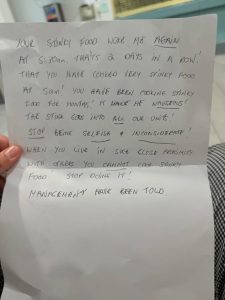 YOUR STINKY FOOD WOKE ME AGAIN
AT 5:30am. THAT'S 2 DAYS IN A ROW!
THAT YOU HAVE COOKED VERY STINKY FOOD
AT 5am! YOU HAVE BEEN COOKING STINKY
FOOD FOR MONTHS! IT MAKES ME NAUSEOUS!
THE STINK GOES INTO ALL OUR UNITS!
STOP BEING SELFISH & INCONSIDERATE!
WHEN YOU LIVE IN SUCH CLOSE PROXIMITY
WITH OTHERS YOU CANNOT COOK STINKY
FOOD STOP DOING IT!
MANAGEMENT HAVE BEEN TOLD